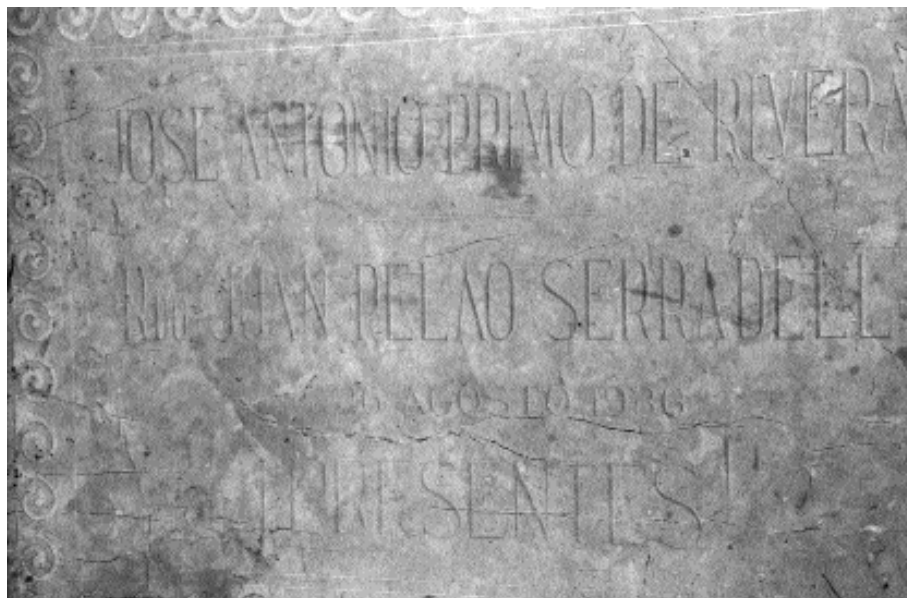 JOSE ANTONIO PRIMO DE RIVERA
JUAN PELAO SERRADELL
26 AGOSTO 1936
¡PRESENTES!